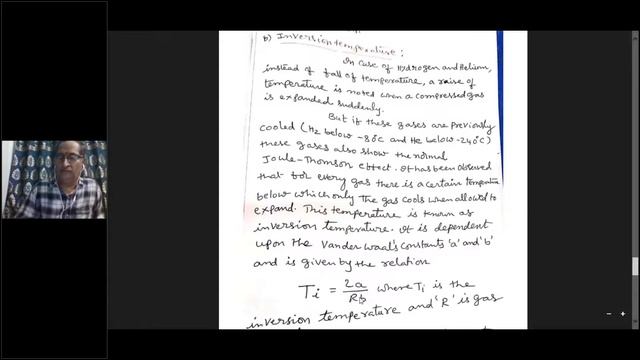 b) Inversion temperature:
In case of Hydrogen and Helium,
instead of fall of temperature, a raise of
temperature is noted when a compressed gas
is expanded suddenly.
But if these gases are previously
cooled (H2 below -80°c and He below -240°c)
these gases also show the normal
Joule-Thomson effect. It has been observed
that for every gas there is a certain temperature
below which only the gas cools when allowed to
expand. This temperature is known as
inversion temperature. It is dependent
upon the Vander Waal's constants 'a' and 'b'
and is given by the relation
Ti = 2a/Rb where Ti is the
inversion temperature and 'R' is gas